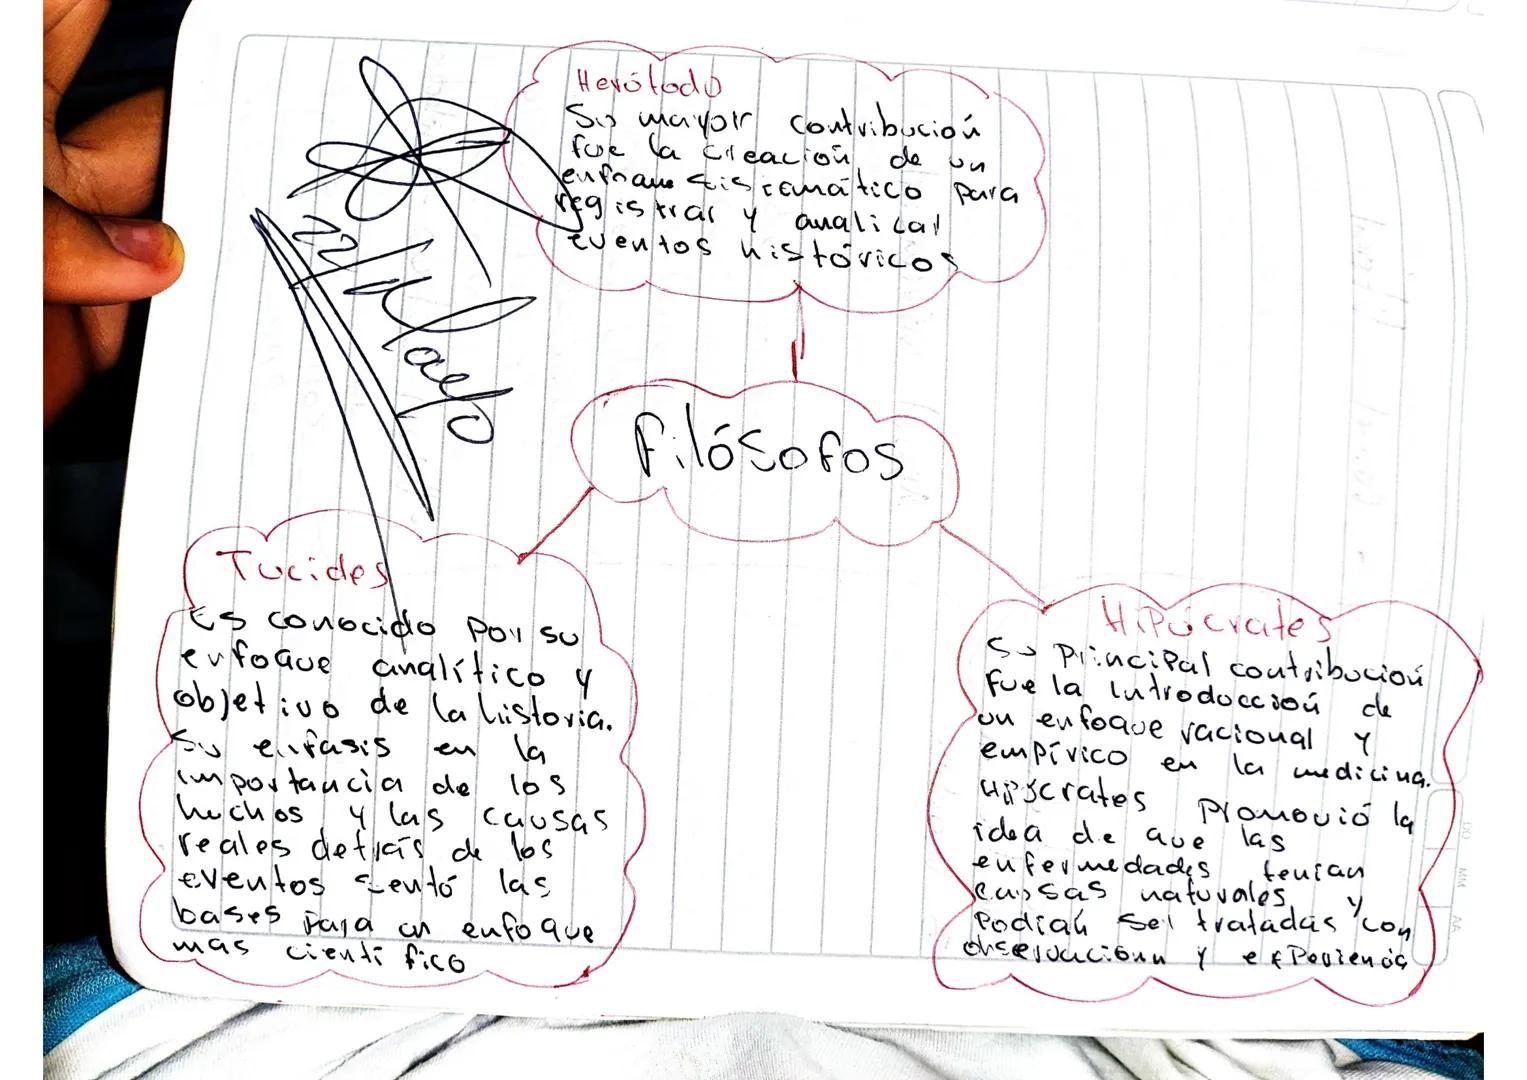 Herótodo
Su mayor contribución
fue la creación de un
enfoque sistemático para
registrar y analizar
eventos históricos
22/Mayo
Filósofos
Tucides
Es conocido por su
enfoque analítico y
objetivo de la historia.
Su enfasis en la
importancia de los
hechos y las causas
reales detrás de los
eventos sentó las
bases para un enfoque
mas cientifico
Hipócrates
Su principal contribución
fue la introducción de
un enfoque racional y
empírico en la medicina.
Hipócrates promovió la
idea de que las
enfermedades tenian
causas naturales y
podian ser tratadas con
observacionn y experiencia
DD MM AA